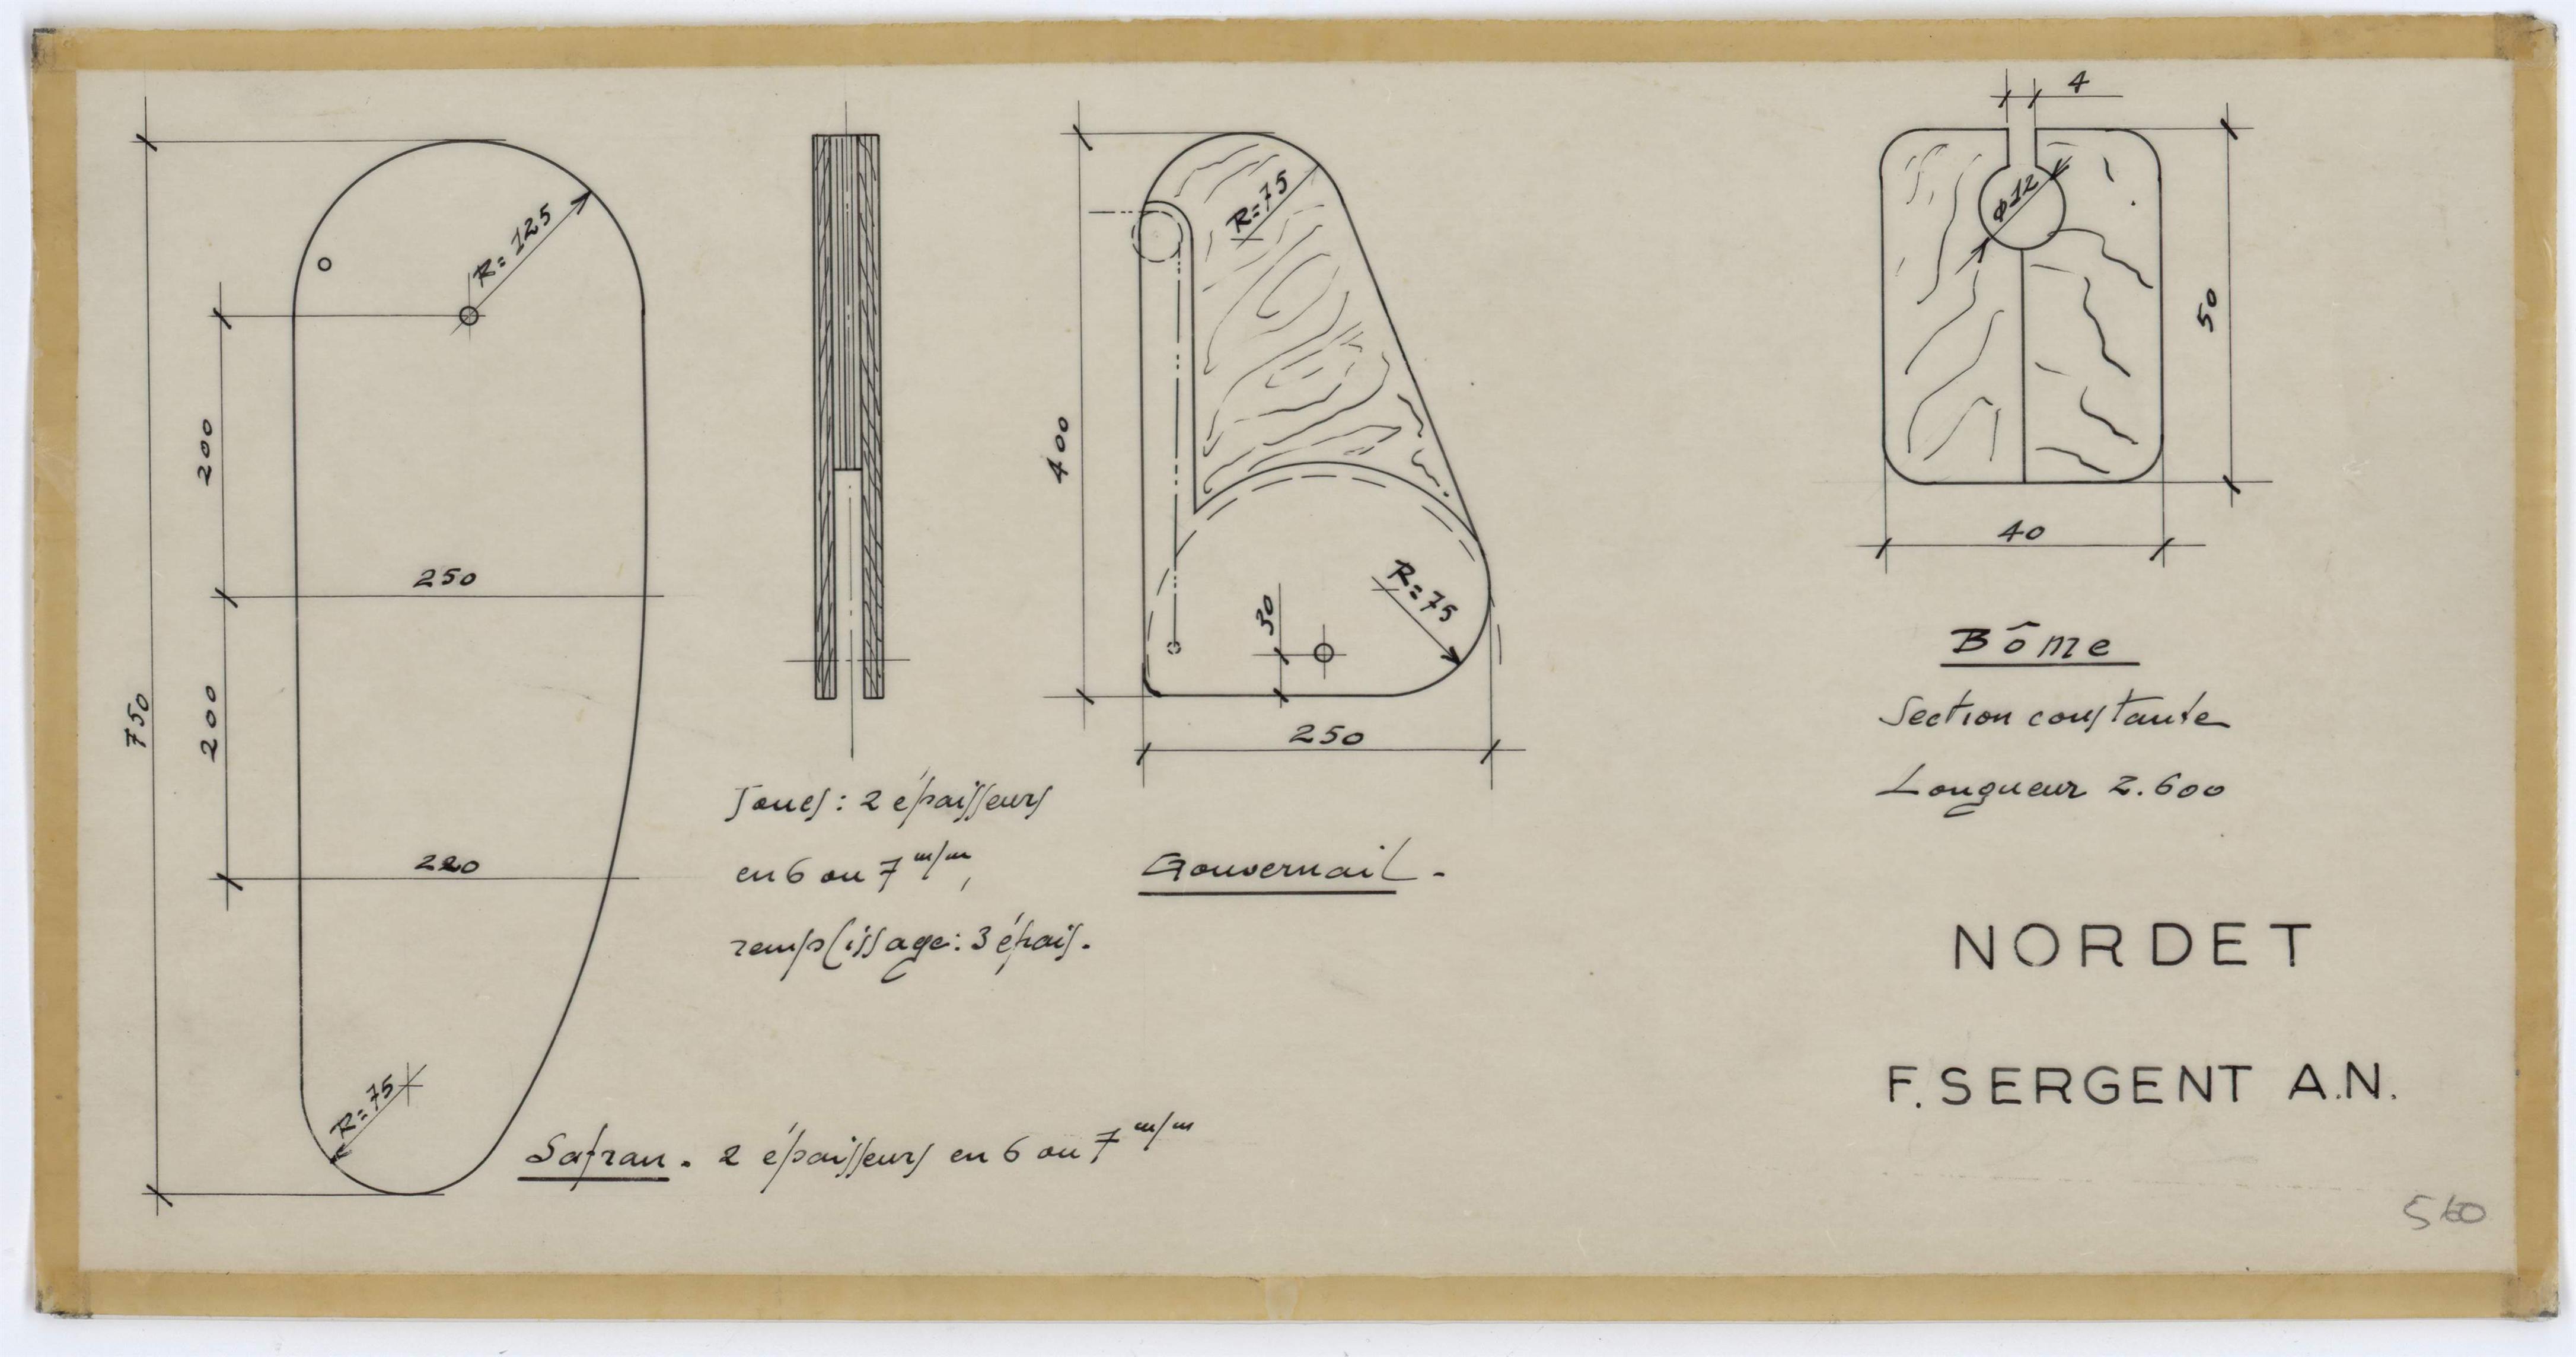 R=125
200
250
750
200
220
R=75
Safran. 2 épaisseurs en 6 ou 7 m/m
Joues: 2 épaisseurs
en 6 ou 7 m/m,
remplissage: 3 épais.
R=75
400
R=75
30
250
Gouvernail.
4
Φ12
50
40
Bôme
Section constante
Longueur 2.600
NORDET
F. SERGENT A.N.
560